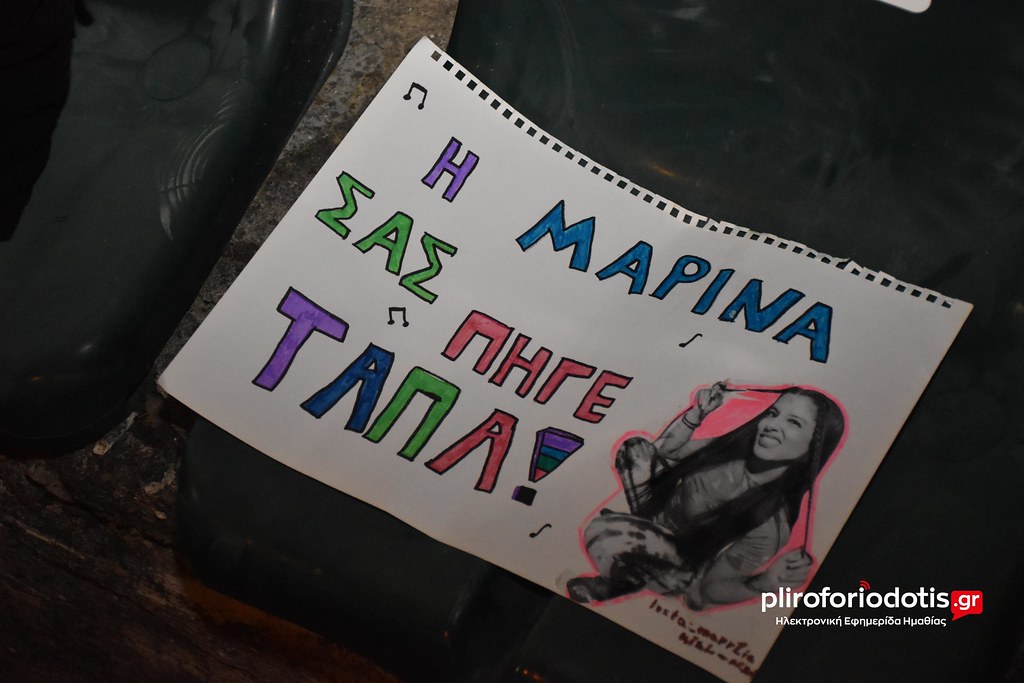 Η ΜΑΡΙΝΑ
ΣΑΣ ΠΗΓΕ
ΤΑΠΑ!
pliroforiodotis.gr
Ηλεκτρονική Εφημερίδα Ημαθίας